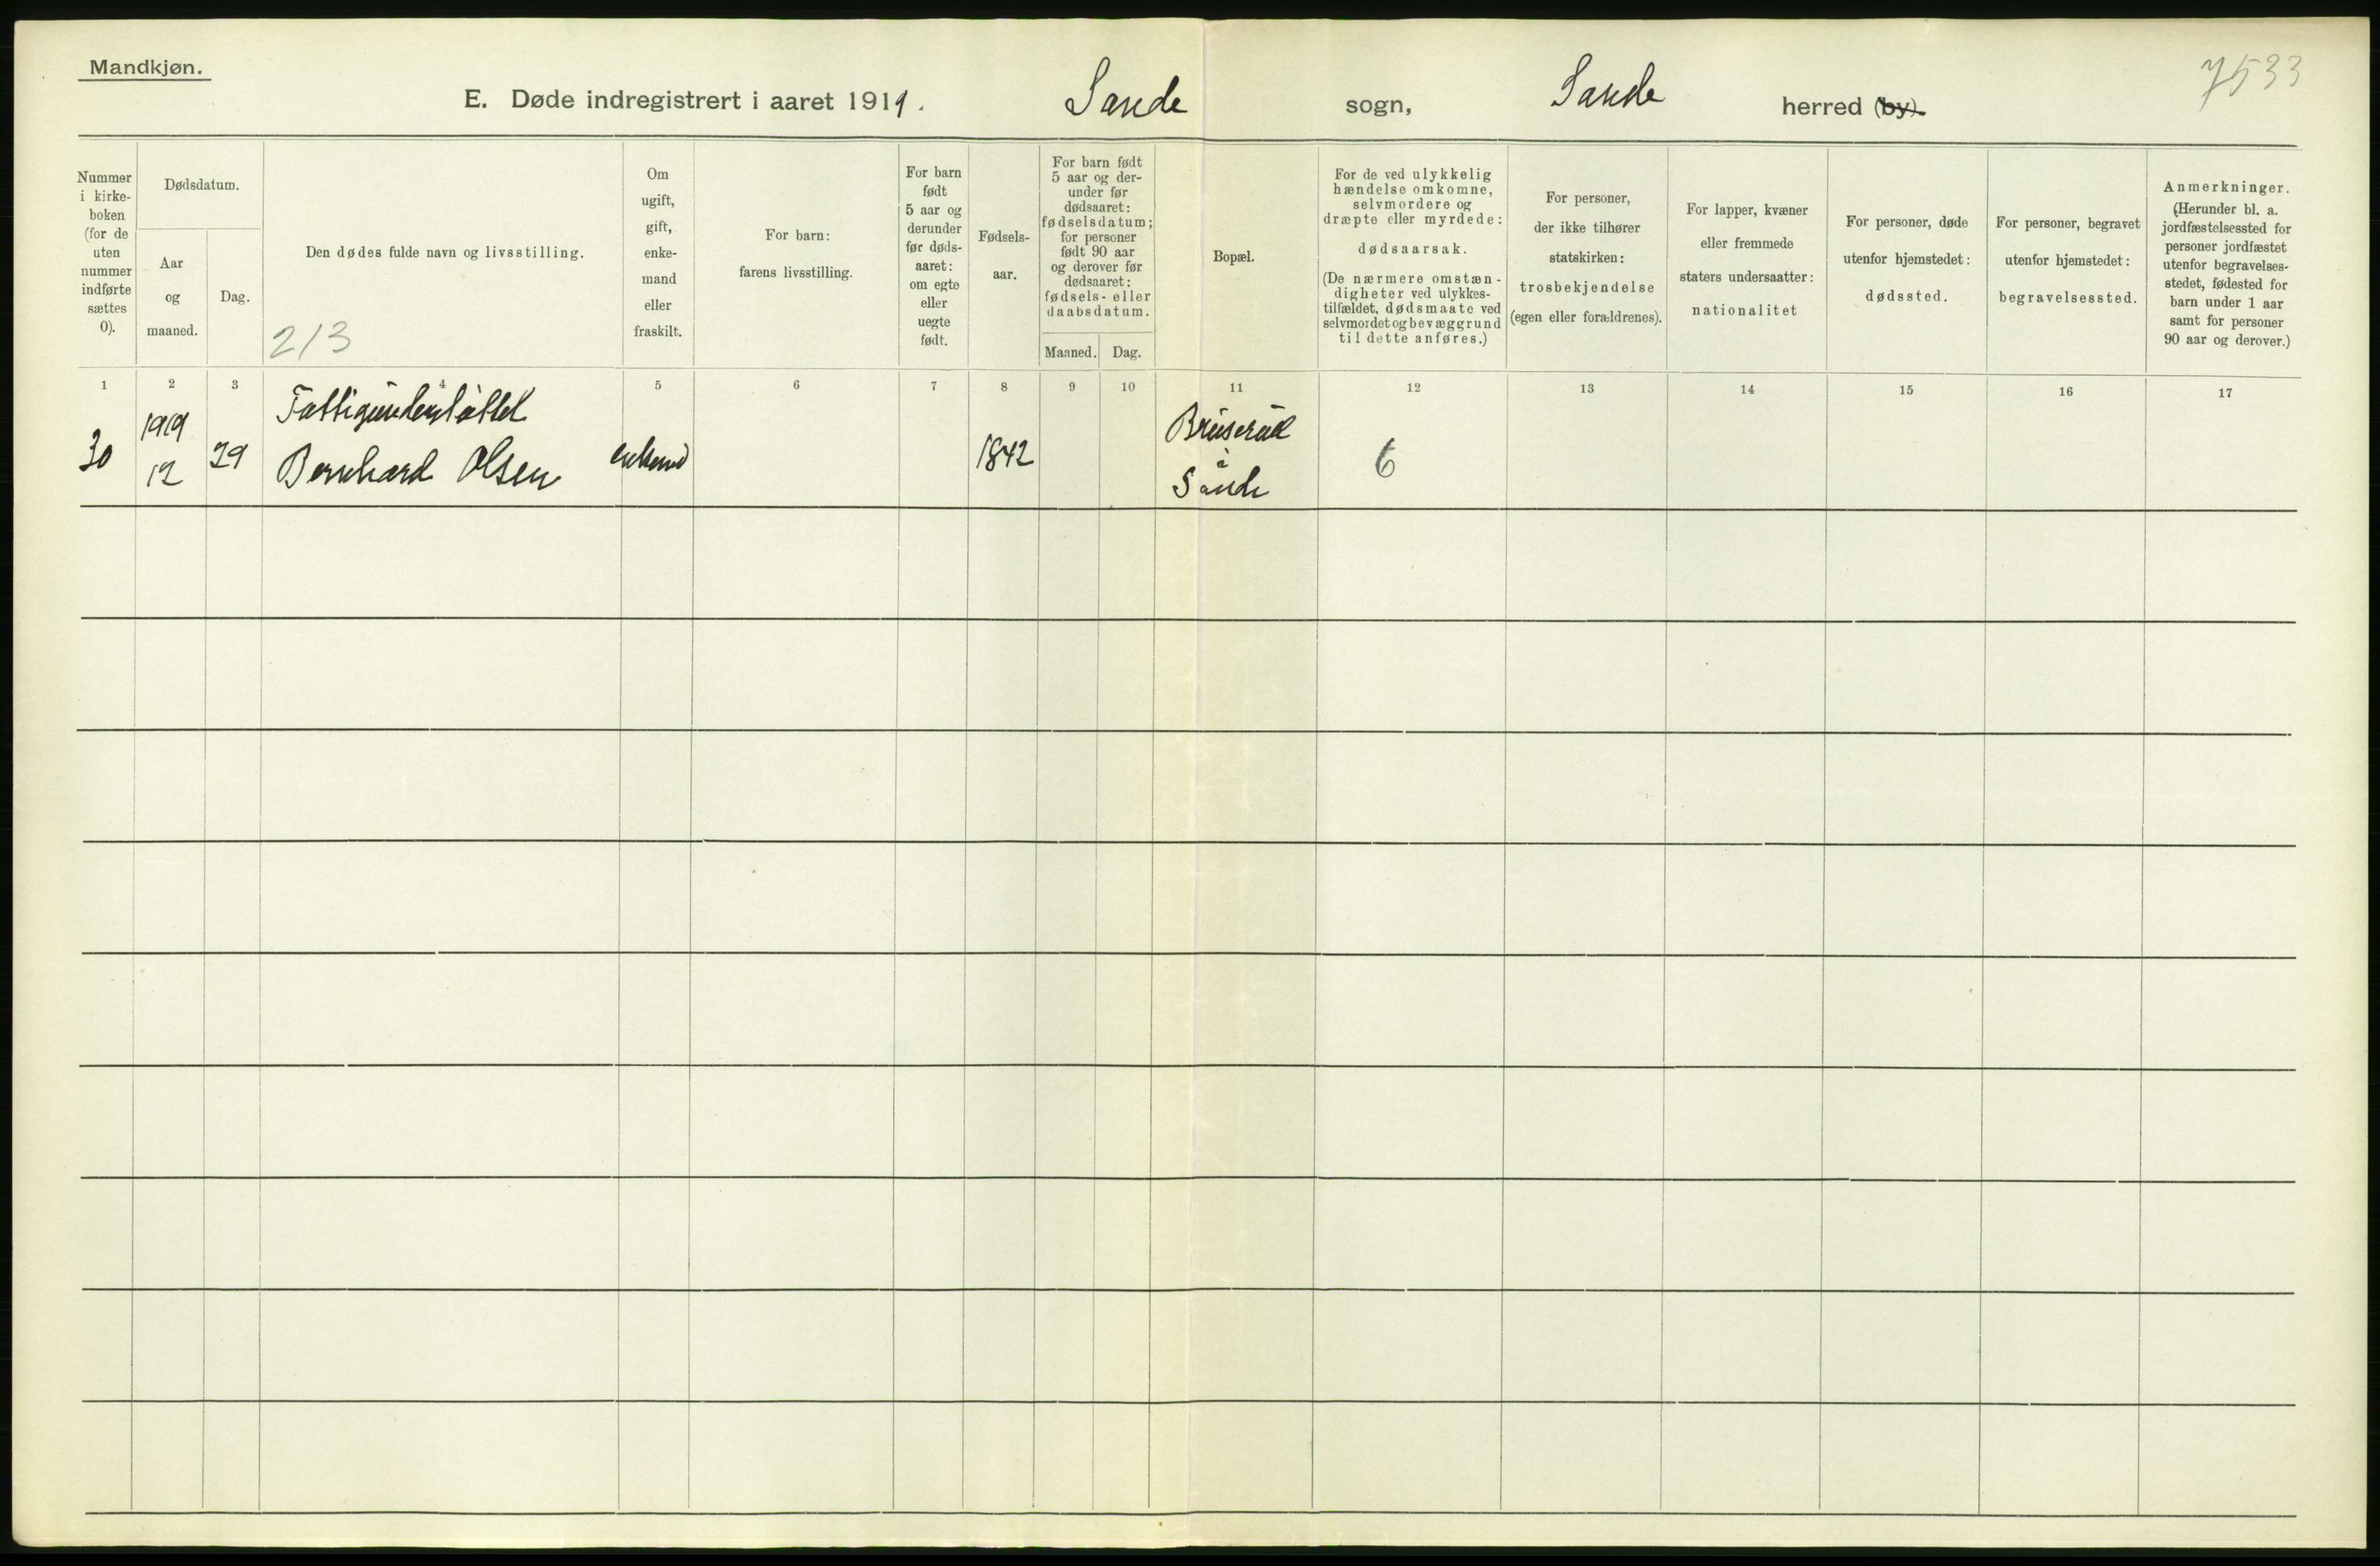 Mandkjøn.
E. Døde indregistrert i aaret 1919.
Sande sogn, Sande herred (by).
7533
Nummer
i kirke-
boken
(for de
uten
nummer
indførte
sættes
0).
Dødsdatum.
Aar
og
maaned.
Dag.
Den dødes fulde navn og livsstilling.
213
Om
ugift,
gift,
enke-
mand
eller
fraskilt.
For barn:
farens livsstilling.
For barn
født
5 aar og
derunder
før døds-
aaret:
om egte
eller
uegte
født.
Fødsels-
aar.
For barn født
5 aar og der-
under før
dødsaaret:
fødselsdatum;
for personer
født 90 aar
og derover før
dødsaaret:
fødsels- eller
daabsdatum.
Maaned.
Dag.
Bopæl.
For de ved ulykkelig
hændelse omkomne,
selvmordere og
dræpte eller myrdede:
dødsaarsak.
(De nærmere omstæn-
digheter ved ulykkes-
tilfældet, dødsmaate ved
selvmordet og bevæggrund
til dette anføres.)
For personer,
der ikke tilhører
statskirken:
trosbekjendelse
(egen eller forældrenes).
For lapper, kvæner
eller fremmede
staters undersaatter:
nationalitet
For personer, døde
utenfor hjemstedet:
dødssted.
For personer, begravet
utenfor hjemstedet:
begravelsessted.
Anmerkninger.
(Herunder bl. a.
jordfæstelsessted for
personer jordfæstet
utenfor begravelses-
stedet, fødested for
barn under 1 aar
samt for personer
90 aar og derover.)
1 2 3 4 5 6 7 8 9 10 11 12 13 14 15 16 17
1919 Fattigunderstøttet Bruserud
30 12 29 Bernhard Olsen enkemd 1842 i 6
Sande